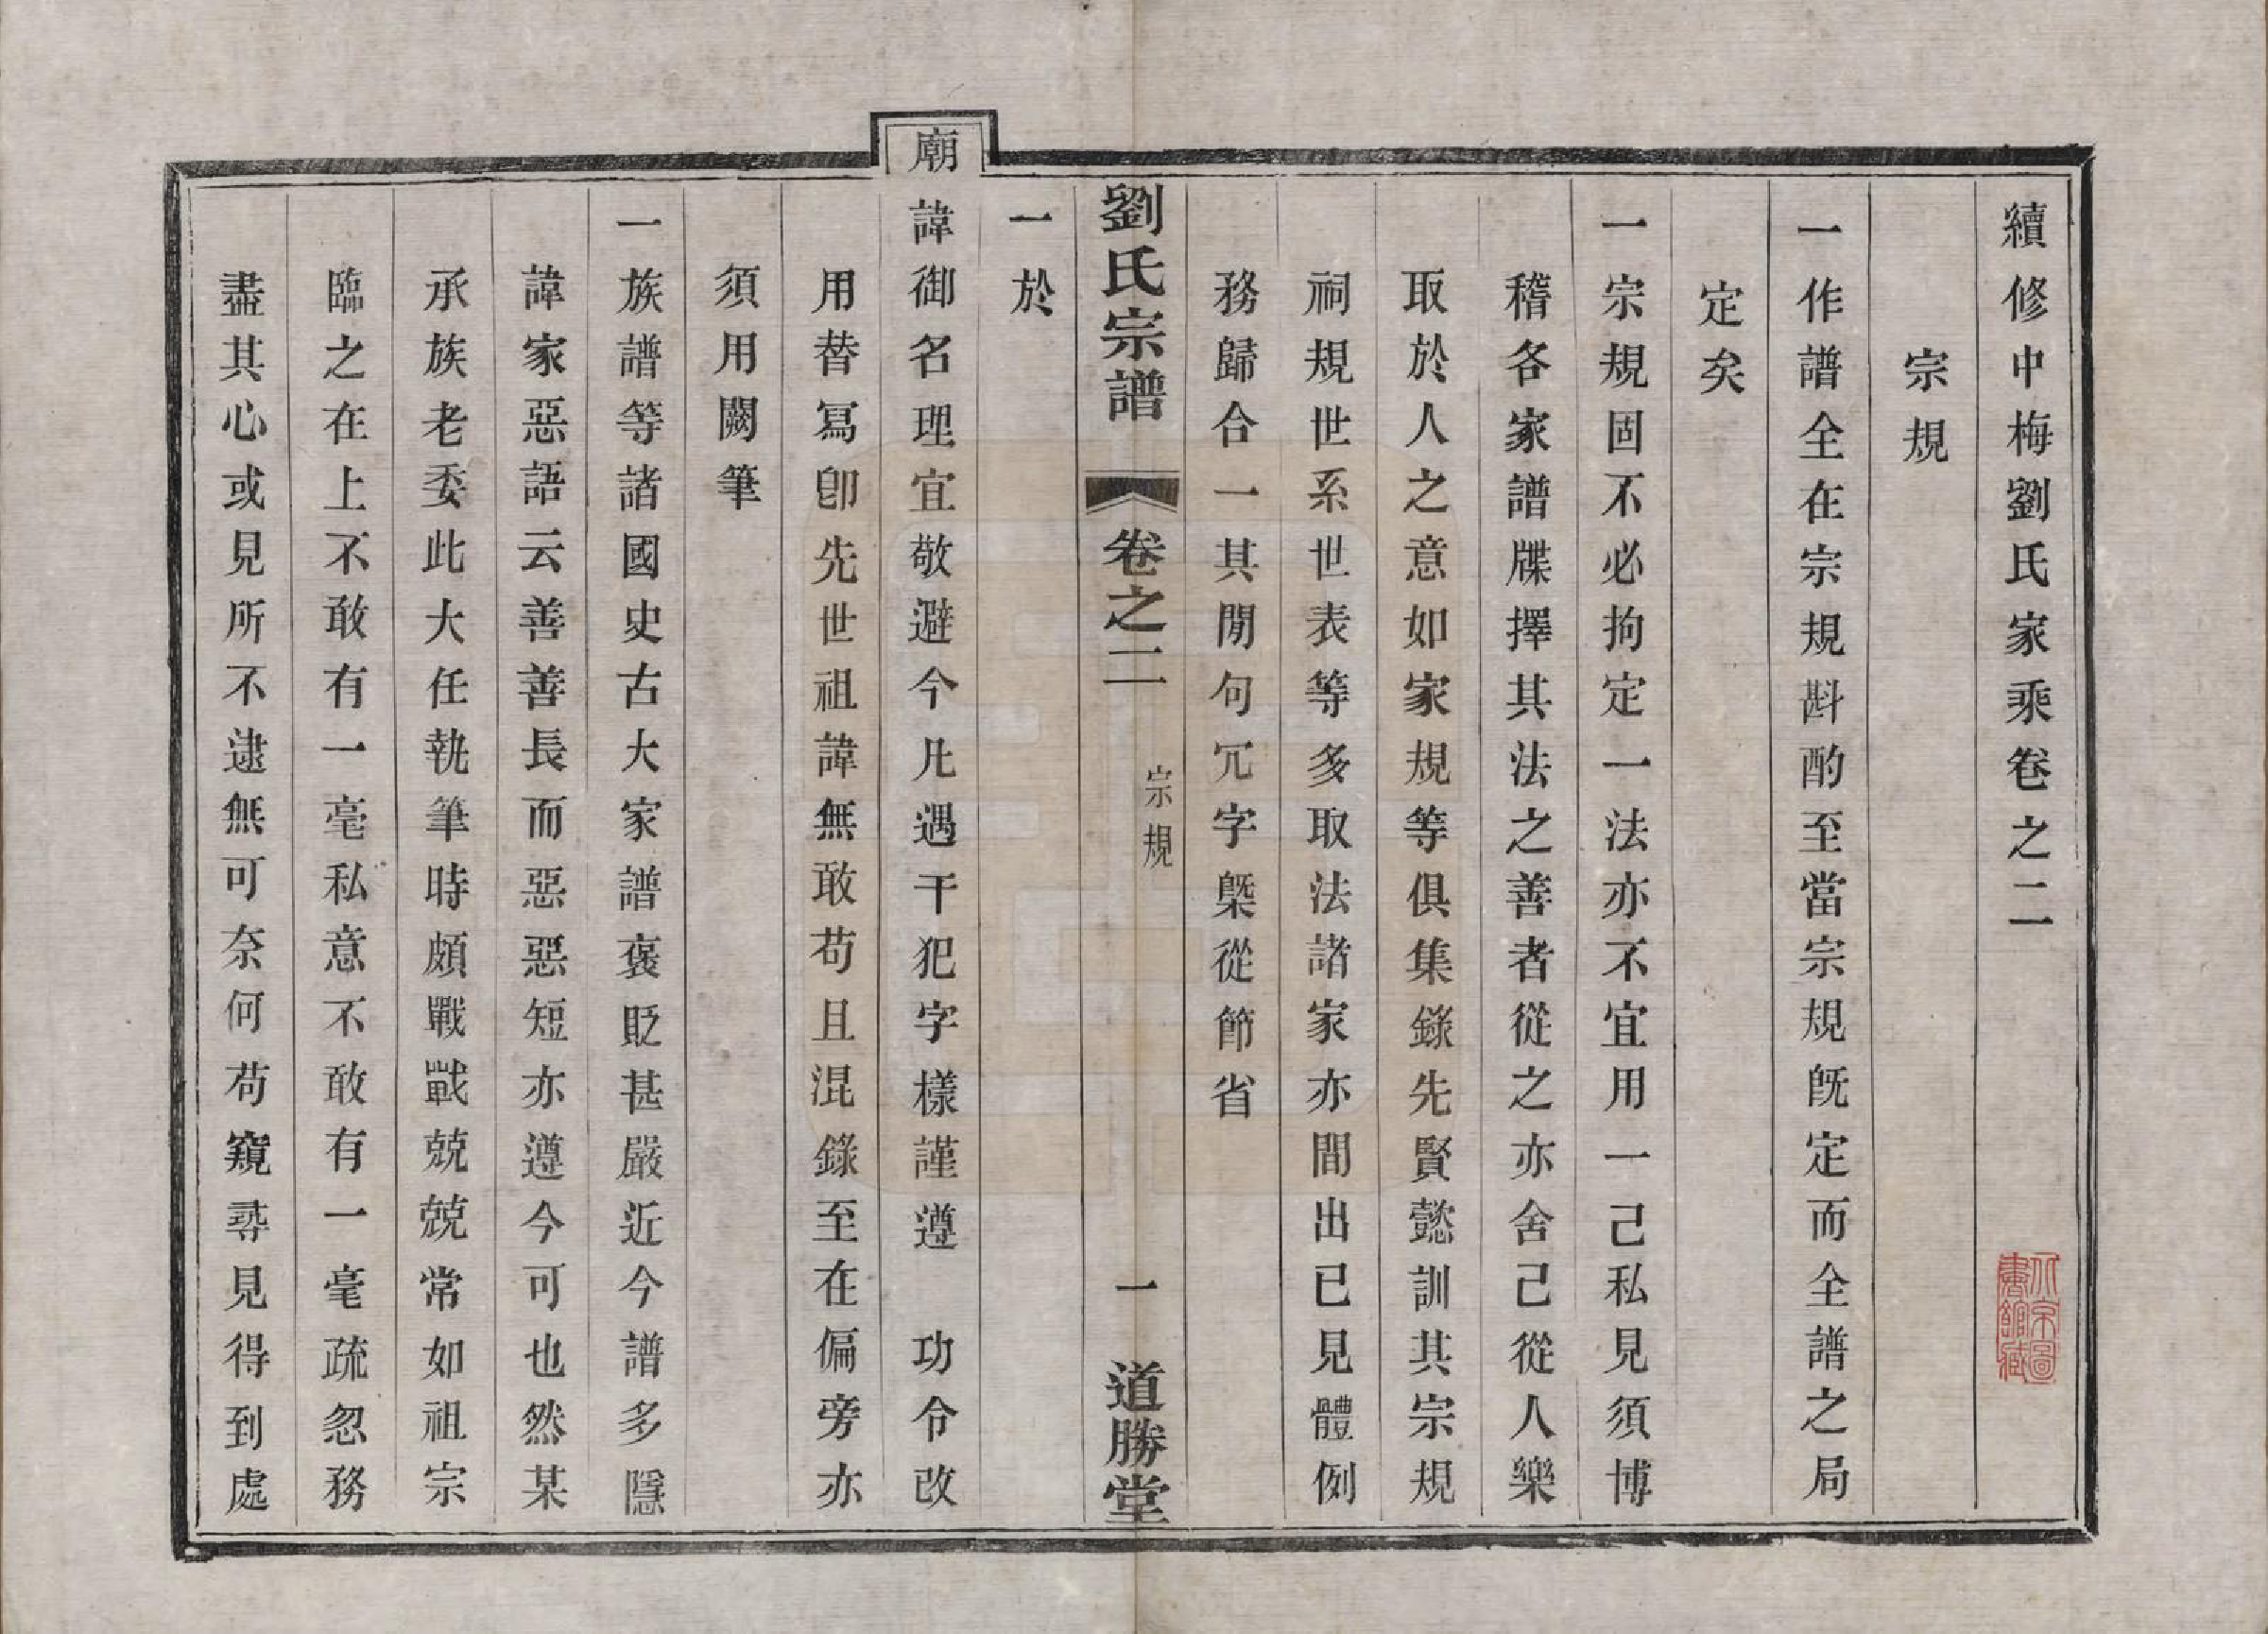 續修中梅劉氏家乘卷之二
宗規
一作譜全在宗規斟酌至當宗規旣定而全譜之局
定矣
一宗規固不必拘定一法亦不宜用一己私見須博
稽各家譜牒擇其法之善者從之亦舍己從人樂
取於人之意如家規等俱集錄先賢懿訓其宗規
祠規世系世表等多取法諸家亦間出已見體例
務歸合一其閒句冗字槩從節省
劉氏宗譜 卷之二 宗規 一 道勝堂
一於
廟諱御名理宜敬避今凡遇干犯字樣謹遵 功令改
用替寫卽先世祖諱無敢苟且混錄至在偏旁亦
須用闕筆
一族譜等諸國史古大家譜褒貶甚嚴近今譜多隱
諱家惡語云善善長而惡惡短亦遵今可也然某
承族老委此大任執筆時頗戰戰兢兢常如祖宗
臨之在上不敢有一毫私意不敢有一毫疏忽務
盡其心或見所不逮無可奈何苟窺尋見得到處